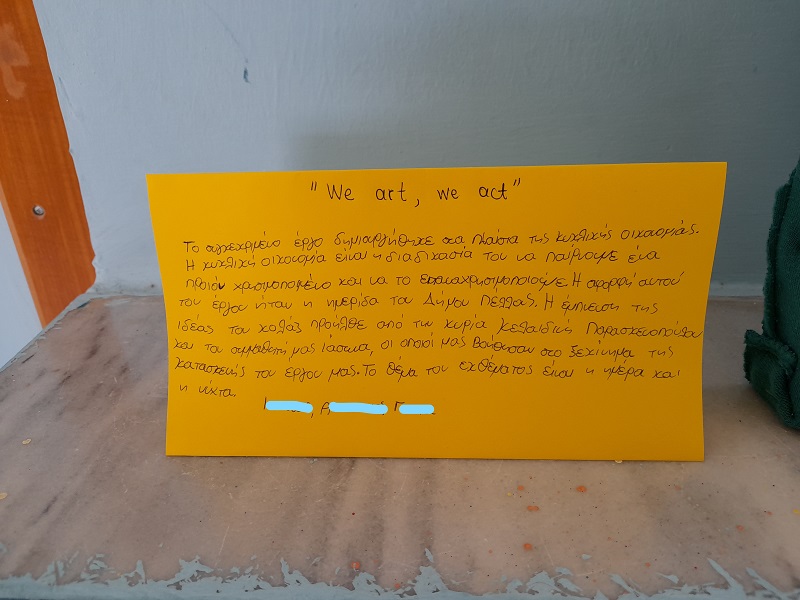 "We art, we act"
Το συγκεκριμένο έργο δημιουργήθηκε στα πλαίσια της κυκλικής οικονομίας.
Η κυκλική οικονομία είναι η διαδικασία του να παίρνουμε ένα
προϊόν χρησιμοποιημένο και να το επαναχρησιμοποιούμε. Η αφορμή αυτού
του έργου ήταν η ημερίδα του Δήμου Πέλλας. Η έμπνευση της
ιδέας του κολάζ προήλθε από την κυρία Κελαιδινή Παρασκευοπούλου
και τον συμμαθητή μας Ιάσωνα, οι οποίοι μας βοήθησαν στο ξεκίνημα της
κατασκευής του έργου μας. Το θέμα του εκθέματος είναι η ημέρα και
η νύχτα.